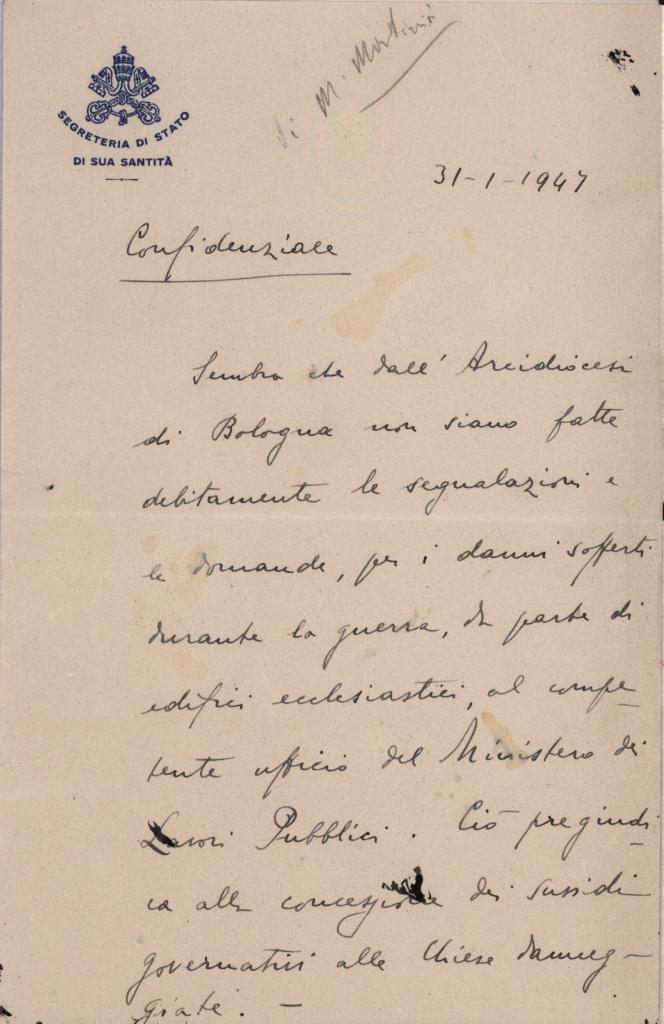 di M. Martini
SEGRETERIA DI STATO
DI SUA SANTITÀ
31-1-1947
Confidenziale
Sembra che dall' Arcidiocesi
di Bologna non siano fatte
debitamente le segnalazioni e
le domande, per i danni sofferti
durante la guerra, da parte di
edifici ecclesiastici, al compe-
tente ufficio del Ministero dei
Lavori Pubblici. Ciò pregiudi-
ca alla concessione dei sussidi
governativi alle Chiese danneg-
giate. -